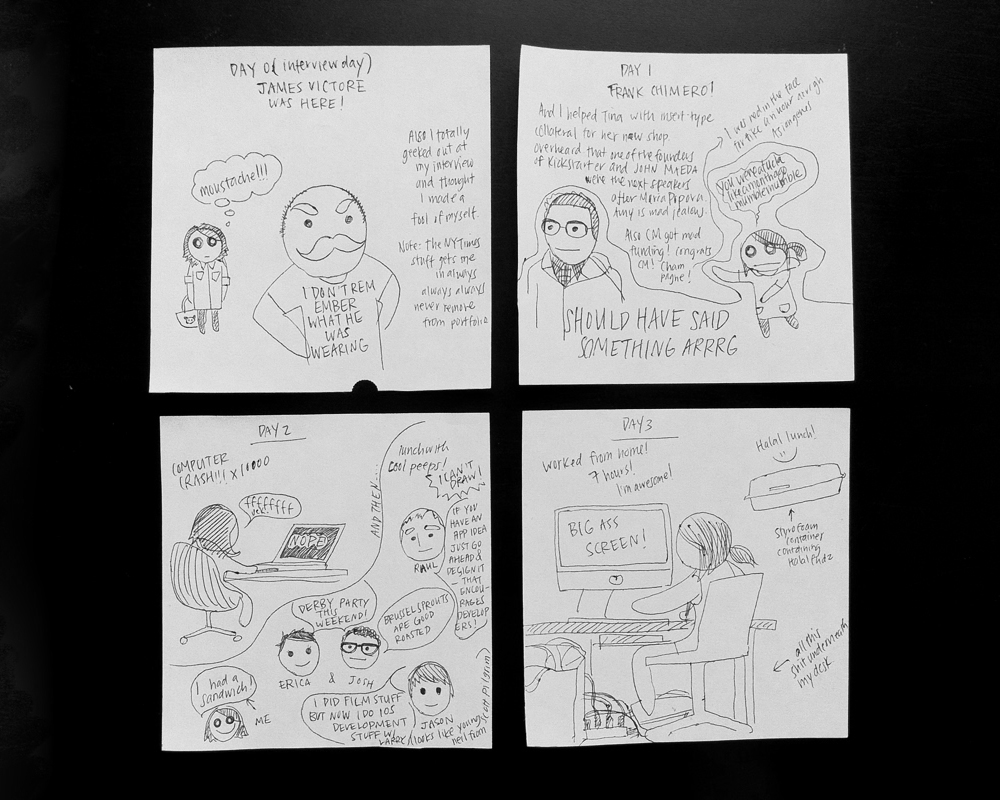 DAY 0 (interview day)
JAMES VICTORE
WAS HERE!
moustache!!!
Also I totally
geeked out at
my interview
and thought
I made a
fool of myself.
Note: the NYTimes
stuff gets me
in always
always always
never remove
from portfolio
I DON'T REM
EMBER
WHAT HE
WAS
WEARING
DAY 1
FRANK CHIMERO!
And I helped Tina with insert-type
collateral for her new shop
overheard that one of the founders
of Kickstarter and JOHN MAEDA
were the next speakers
after Maria Popova.
Amy is mad jealous.
Also CM got mad
funding! congrats
CM! Cham
pagne!
I was red in the face
for like an hour arrrgh
You were a fuck
mumble mumble
SHOULD HAVE SAID
SOMETHING ARRRG
DAY 2
COMPUTER
CRASH!!! X 10000
ffffffff
NOPE!
AND THEN...
lunch with
cool peeps!
I CAN'T
DRAW!
RAUL
IF YOU
HAVE AN
APP IDEA
JUST GO
AHEAD &
DESIGN IT
— THAT
ENCOU-
RAGES
DEVELOP
ERS!
DERBY PARTY
THIS
WEEKEND!
BRUSSEL SPROUTS
ARE GOOD
ROASTED
ERICA & JOSH
I had a
sandwich!
ME
I DID FILM STUFF
BUT NOW I DO IOS
DEVELOPMENT
STUFF W/
JASON
looks like young
neil from
scott pilgrim)
DAY 3
worked from home!
7 hours!
I'm awesome!
Halal lunch!
BIG ASS
SCREEN!
styrofoam
container
containing
halal
all this
shit underneath
my desk